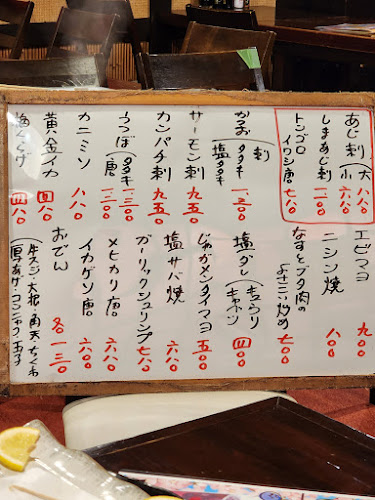 あじ刺(大 八八〇
小 六八〇
しまあじ刺 一二〇〇
トンゴロ
イワシ唐 七八〇
かつお(刺
タタキ
塩タタキ 一、二〇〇
サーモン刺 九五〇
カンパチ刺 九五〇
うつぼ(タタキ 一三〇〇
唐 一二〇〇
カニミソ 八八〇
黄金イカ 四八〇
梅くらげ 四八〇
エビマヨ 九〇〇
ニシン焼 八〇〇
なすとブタ肉の
よさこい炒め 七〇〇
塩ダレ(きゅうり
キャベツ 四〇〇
じゃがメンタイマヨ 五〇〇
塩サバ焼 六八〇
ガーリックシュリンプ 七八〇
メヒカリ唐 六八〇
イカゲソ唐 六〇〇
おでん 各一三〇
(牛スジ・大根・角天・ちくわ
厚あげ・コンニャク・玉子